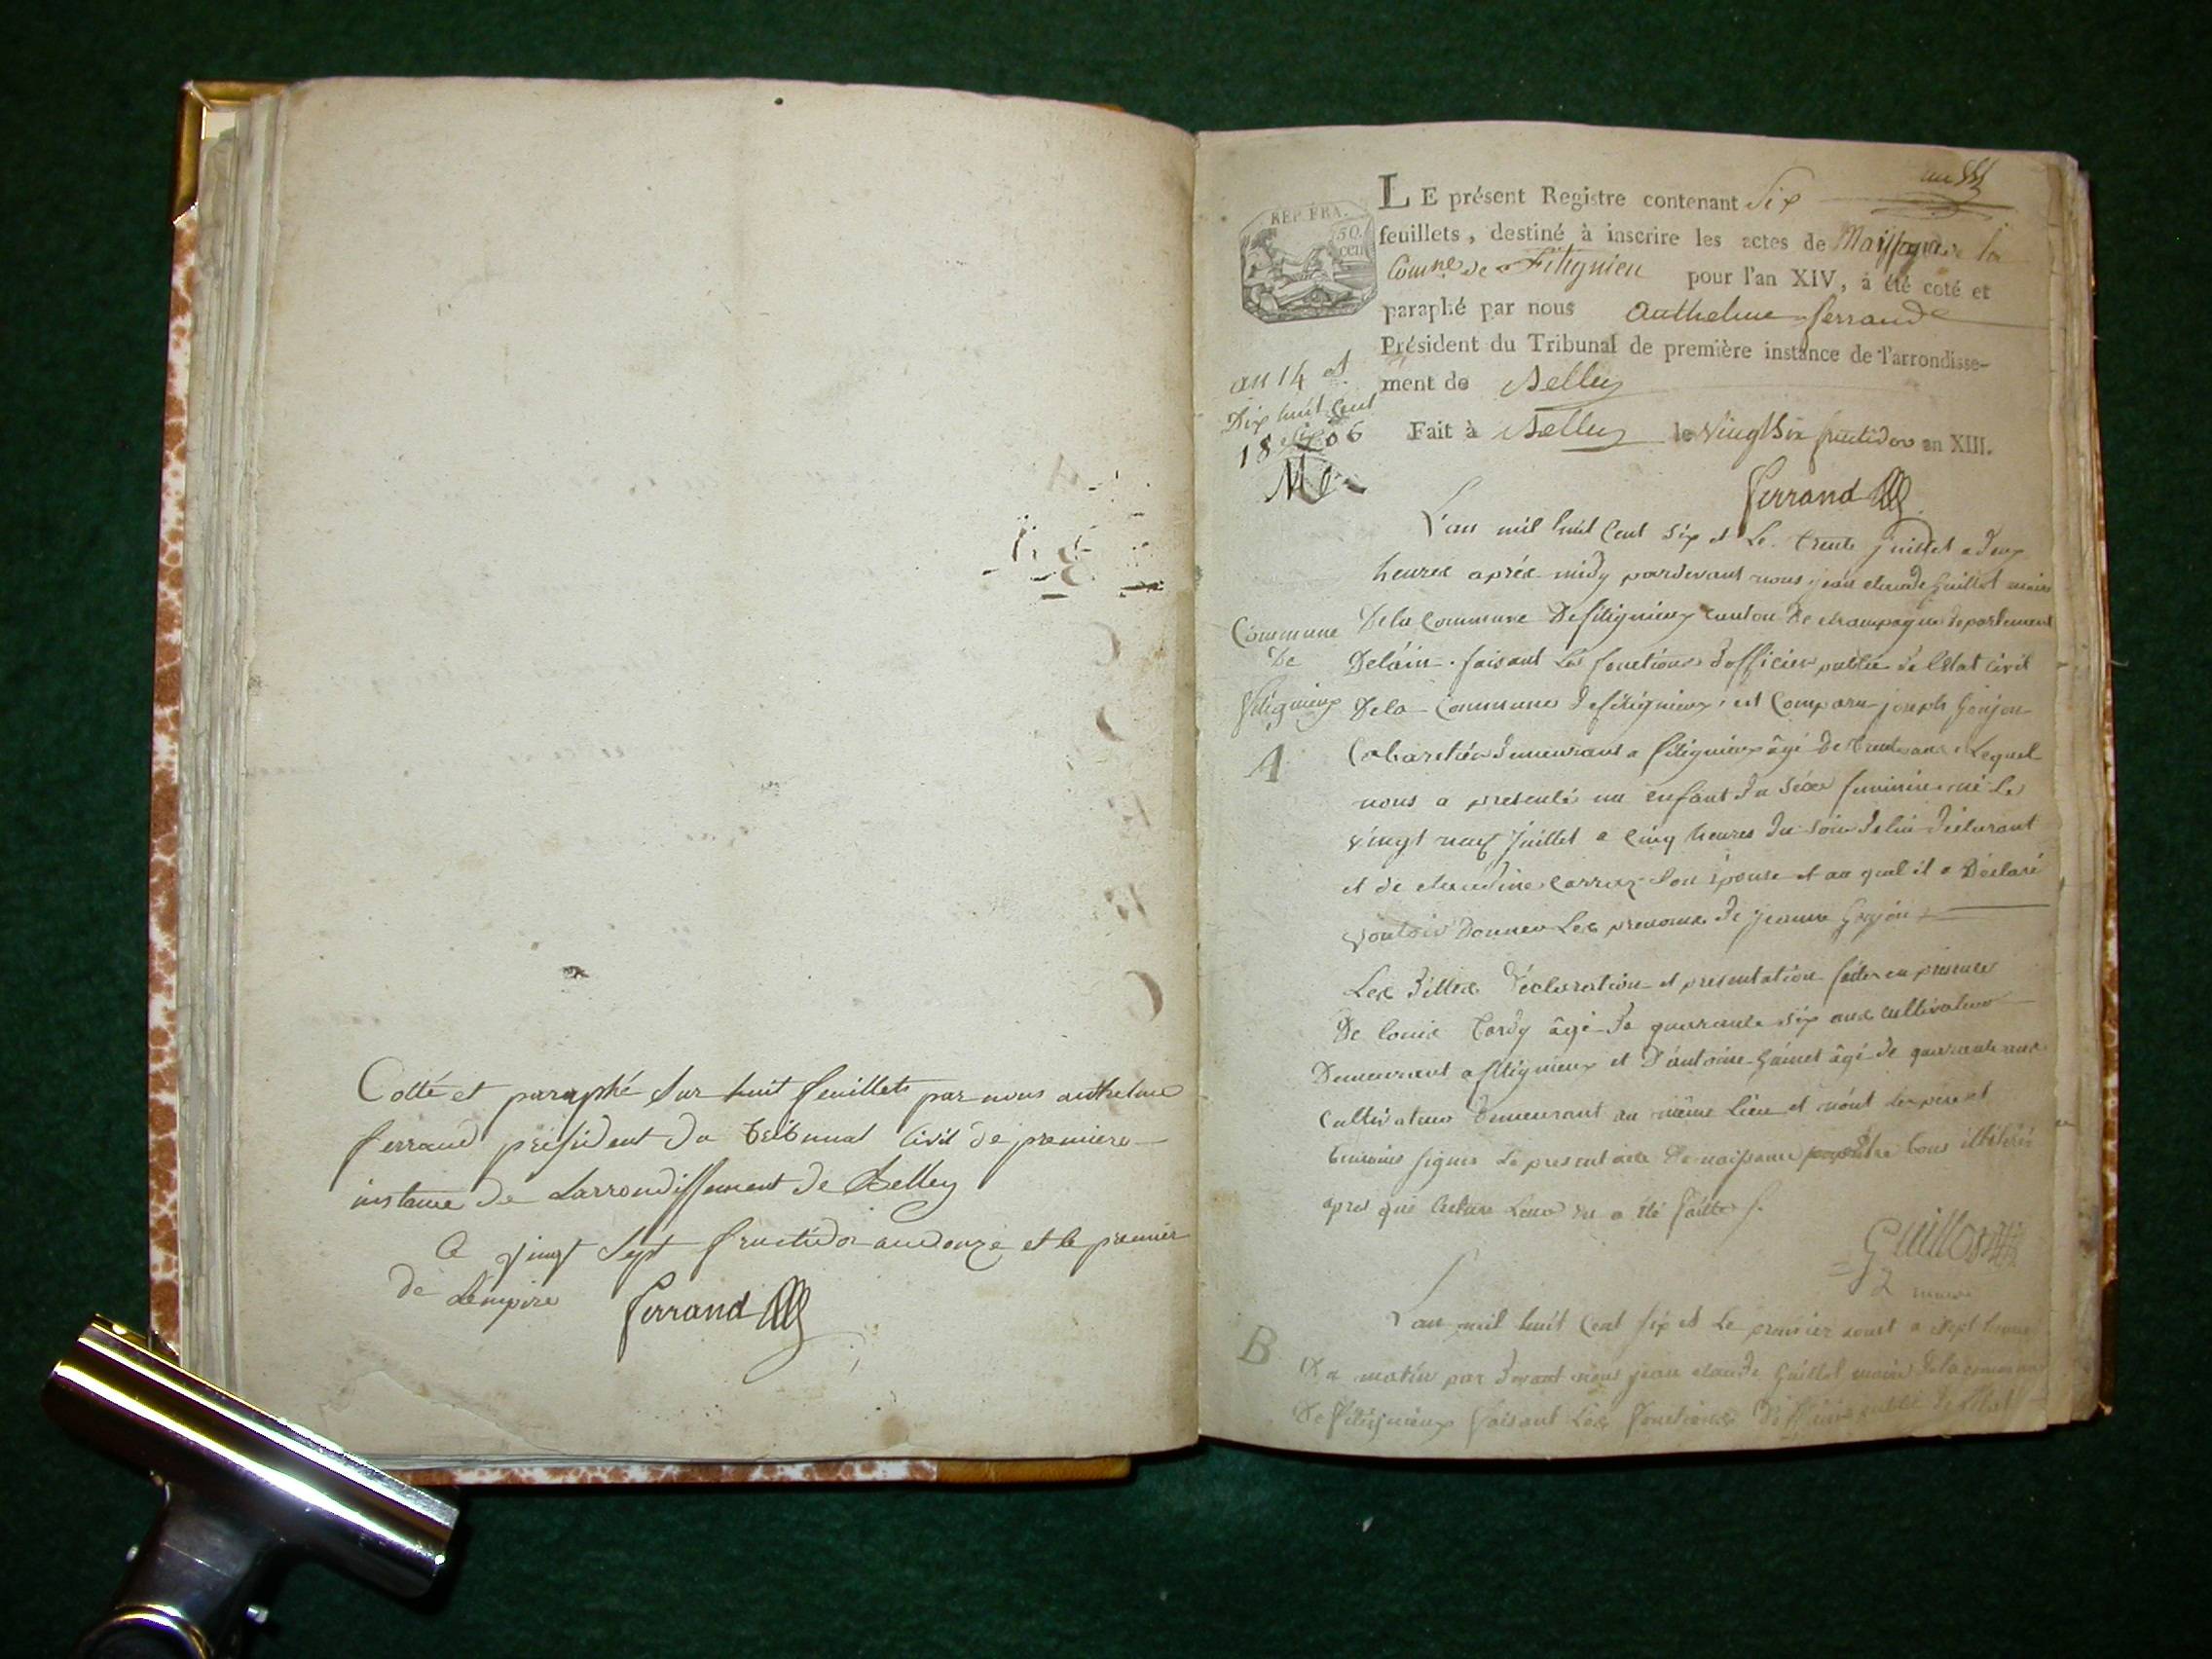 Cotté et paraphé sur huit feuillets par nous anthelme
ferrand président du tribunal civil de premiere
instance de Larrondissement de Belley
Ce vingt sept fructidor an douze et le premier
de Lempire Ferrand
REP. FRA.
50.
CEN
LE présent Registre contenant Six
feuillets, destiné à inscrire les actes de Naissance de la
Comne de Fitignieu pour l'an XIV, a été coté et
paraphé par nous Anthelme ferrand
Président du Tribunal de première instance de l'arrondisse-
ment de Belley
Fait à Belley le vingt six fructidor an XIII.
Ferrand
an 14 et
Dix huit Cent
six
1806
L'an mil huit Cent six et Le trente juillet a deux
heures après midy pardevant nous jean claude Guillot maire
De la Commune De fitignieux canton de champagne departement
Delain faisant Les fonctions d'officier public de l'Etat civil
De la Commune de fitignieux est Comparu joseph Gonjon
Commune
De
fitignieux
A
Cabaretier demeurant a fitignieux âgé de trente ans Lequel
nous a presenté un enfant du sexe feminin né Le
vingt neuf juillet a cinq heures du soir de lui déclarant
et de claudine Carraz son épouse et au quel il a Déclaré
vouloir Donner Les prenoms de jeanne Gonjon
Les dittes Déclaration et presentation faites en presence
De louis tardy âgé de quarante six ans cultivateur
Demeurant a fitignieux et D'antoine Gainet âgé de quarante ans
Cultivateur Demeurant au même Lieu et n'ont Les père et
temoins signés Le present acte De naissance pour être tous illitérés
apres que Lecture Leur en a été faitte
Guillot
maire
B
L'an mil huit Cent six et Le premier aout a sept heures
Du matin par devant nous jean claude Guillot maire de la commune
De fitignieux faisant Les fonctions D'officier public de l'Etat